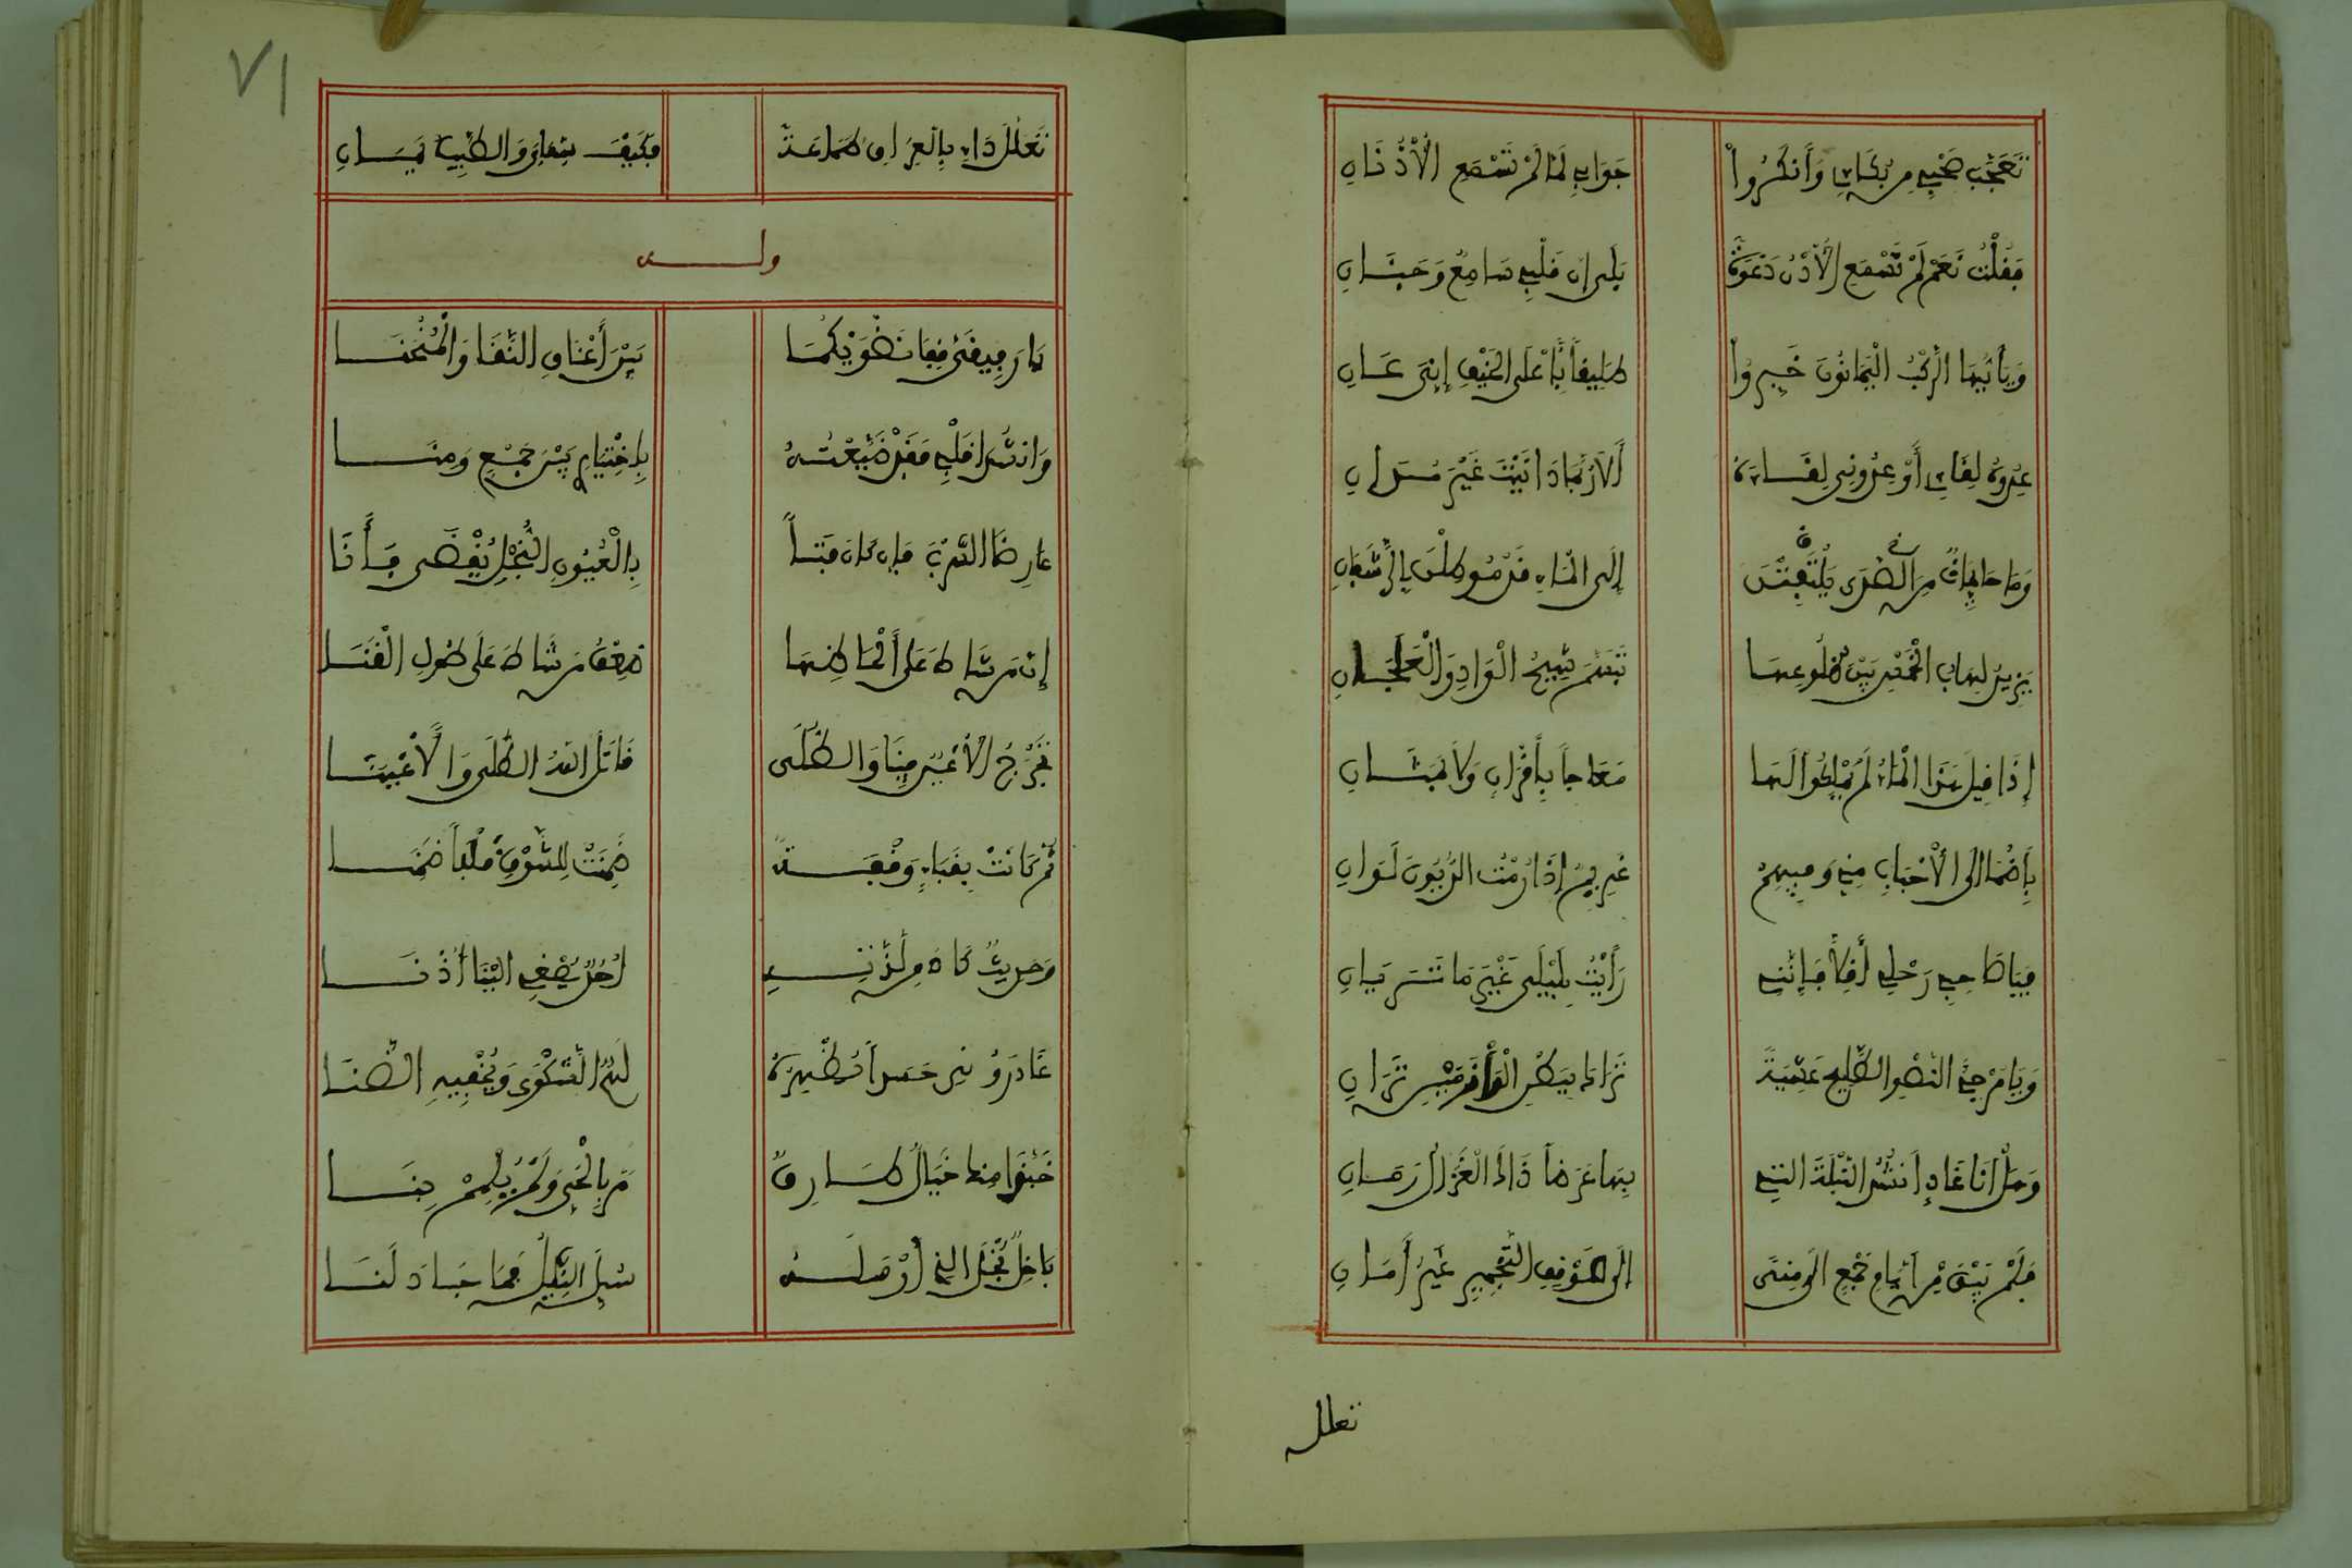 تَعَجَّبَ صَحْبِي مِن بُكَائِي وَأَنكَرُواْ جَوَابِي لِمَا لَمْ تَسْمَعِ الْأُذُنَانِ
فَقُلْتُ نَعَمْ لَمْ تَسْمَعِ الْأُذْنُ دَعْوَةً بَلَى إن قَلْبِي سَامِعٌ وَجَنَانِ
وَيَأَيُّهَا الرَّكْبُ الْيَمَانُونَ خَبِرُواْ طَلِيقاً بِأَعْلَى الْخَيْفِ إِنِّي عَانِ
عِدُوهُ لِقَائِي أَوْ عِدُونِي لِقَاءَهُ أَلَا رُبَّمَا دَانَيْتُ غَيْرَ مُدَانِ
وَمَا حَائِمَاتٌ مِنَ الصَّدَى يَلْتَفِتْنَ إِلَى الْمَاءِ قَدْ مُوطِلْنَ بِالرَّشَفَانِ
يَزِيدُ لِهَابُ الْخِمْسِ بَيْنَ ضُلُوعِهَا تَنَسُّمَ شِيحِ الْوَادِ وَالْعَلَجَانِ
إِذَا قِيلَ هَذَا الْمَاءُ لَمْ يَمْلِكُوا لَهَا مَعَاجاً بِأَقْرَانٍ وَلَا بِمَثَانِ
بِأَظْمَا الَى الْأَحْبَابِ مِنِّي وَفِيهِمُ غَرِيمٌ إِذَا رُمْتُ الدُّيُونَ لَوَانِ
فَيَا صَاحِبَيْ رَحْلِي أَقِلَّا فَإِنَّنِي رَأَيْتُ بِلَيْلَى غَيْرَ مَا تَرَيَانِ
وَيَا مُزْجِيَ النِّضْوِ الطَّلِيحِ عَشِيَّةً تَرَاءَا بِبَطْنِ الْوَأْدِ تَرَانِ
وَهَلْ انَا غَادٍ أَنشُدُ النَّبْلَةَ التِي بِهَا عَرَضاً ذَاكَ الْغَزَالُ رَمَانِ
فَلَمْ يَبْقَ مِنْ أَيَّامِ جَمْعٍ الَى مِنَى إِلَى مَوْقِفِ التَّجْمِيرِ غَيْرُ أَمَانِ
تعلل
٧١
تَعَلَّلَ دَاءٌ بِالْعِرَاقِ طَمَاعَةً فَكَيْفَ شِفَائِي وَالطَّبِيبُ يَمَانِ
ولــه
يَا رَفِيقَيَّ قِفَا نِضْوَيْكُمَا بَيْنَ أَعْنَاقِ النَّقَا وَالْمُنْحَنَا
وَانشُدَا قَلْبِي فَقَدْ ضَيَّعْتُهُ بِاخْتِيَارِي بَيْنَ جَمْعٍ وَمِنَا
عَارِضَا السِّرْبَ فَإن كَانَ فَتىً بِالْعُيُونِ النُّجْلِ يُقْضَى فَأَنَا
إنَّ مَن شَاطَ عَلَى أَلْحَاظِهَا ضِعْفُ مَن شَاطَ عَلَى طُولِ الْقَنَا
تَجْرَحُ الْأَعْيُنُ فِينَا وَالطُّلَى قَاتَلَ اللهُ الطُّلَى وَالْأَعْيُنَا
ثُمَّ كَانَتْ بِقُبَاءٍ وَقْفَةً ضَمِنَتْ لِلشَّوْقِ قَلْباً ضَمِنَا
وَحَدِيثٌ كَانَ مِن لَذَّتِهِ أُحُدٌ يُصْغِي الَيْنَا أُذُنَا
غَادَرُونِي جَسَداً تُظْهِرُهُ لَهُمُ الشَّكْوَى وَيُخْفِيهِ الضَّنَا
حَبَّذَا مِنهَا خَيَالٌ طَارِقٌ مَرَّ بِالْحَيِّ وَلَمْ يُلْمِمْ بِنَا
بَاخِلٌ بُخْلَ الذِي أَرْسَلَهُ سُئِلَ النَّيْلَ فَمَا جَادَ لَنَا